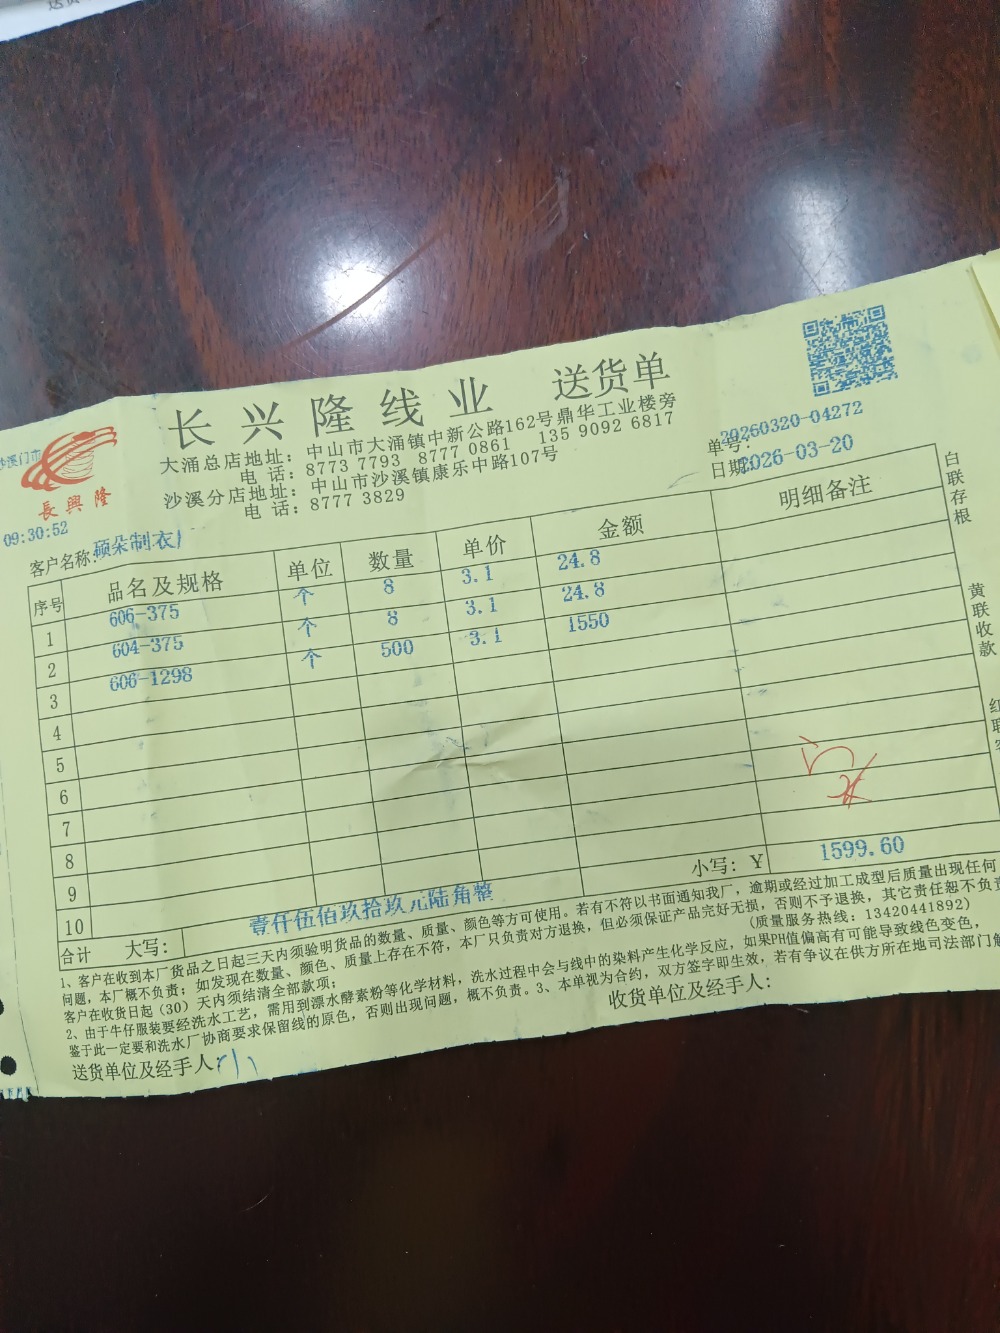 长兴隆线业 送货单
大涌总店地址：中山市大涌镇中新公路162号鼎华工业楼旁
电 话：8773 7793 8777 0861 135 9092 6817
沙溪分店地址：中山市沙溪镇康乐中路107号
电 话：8777 3829
沙溪门市
長興隆
09:30:52
单号：20260320-04272
日期：2026-03-20
客户名称：硕朵制衣厂
序号 品名及规格 单位 数量 单价 金额 明细备注
1 606-375 个 8 3.1 24.8
2 604-375 个 8 3.1 24.8
3 606-1298 个 500 3.1 1550
4
5
6
7
8
9
10
小写：￥ 1599.60
合计 大写：壹仟伍佰玖拾玖元陆角整
1、客户在收到本厂货品之日起三天内须验明货品的数量、质量、颜色等方可使用。若有不符以书面通知我厂，逾期或经过加工成型后质量出现任何
问题，本厂概不负责；如发现在数量、颜色、质量上存在不符，本厂只负责对方退换，但必须保证产品完好无损，否则不予退换，其它责任恕不负责
客户在收货日起（30）天内须结清全部款项；
(质量服务热线：13420441892)
2、由于牛仔服装要经洗水工艺，需用到漂水酵素粉等化学材料，洗水过程中会与线中的染料产生化学反应，如果PH值偏高有可能导致线色变色，
鉴于此一定要和洗水厂协商要求保留线的原色，否则出现问题，概不负责。3、本单视为合约，双方签字即生效，若有争议在供方所在地司法部门解
送货单位及经手人：
收货单位及经手人：
白联存根
黄联收款
红联客